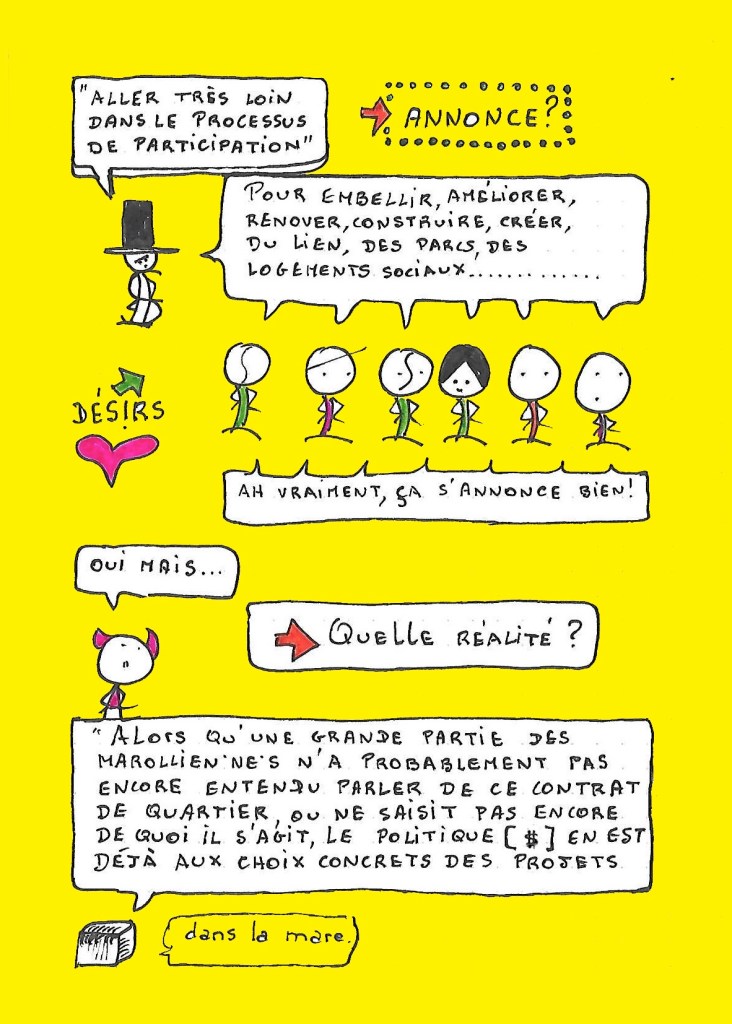 "ALLER TRÈS LOIN
DANS LE PROCESSUS
DE PARTICIPATION"
ANNONCE?
POUR EMBELLIR, AMÉLIORER,
RENOVER, CONSTRUIRE, CRÉER,
DU LIEN, DES PARCS, DES
LOGEMENTS SOCIAUX............
DÉSIRS
AH VRAIMENT, ÇA S'ANNONCE BIEN!
OUI MAIS...
QUELLE RÉALITÉ ?
"ALORS QU'UNE GRANDE PARTIE DES
MAROLLIEN·NE·S N'A PROBABLEMENT PAS
ENCORE ENTENDU PARLER DE CE CONTRAT
DE QUARTIER, OU NE SAISIT PAS ENCORE
DE QUOI IL S'AGIT, LE POLITIQUE [$] EN EST
DÉJÀ AUX CHOIX CONCRETS DES PROJETS
dans la mare.